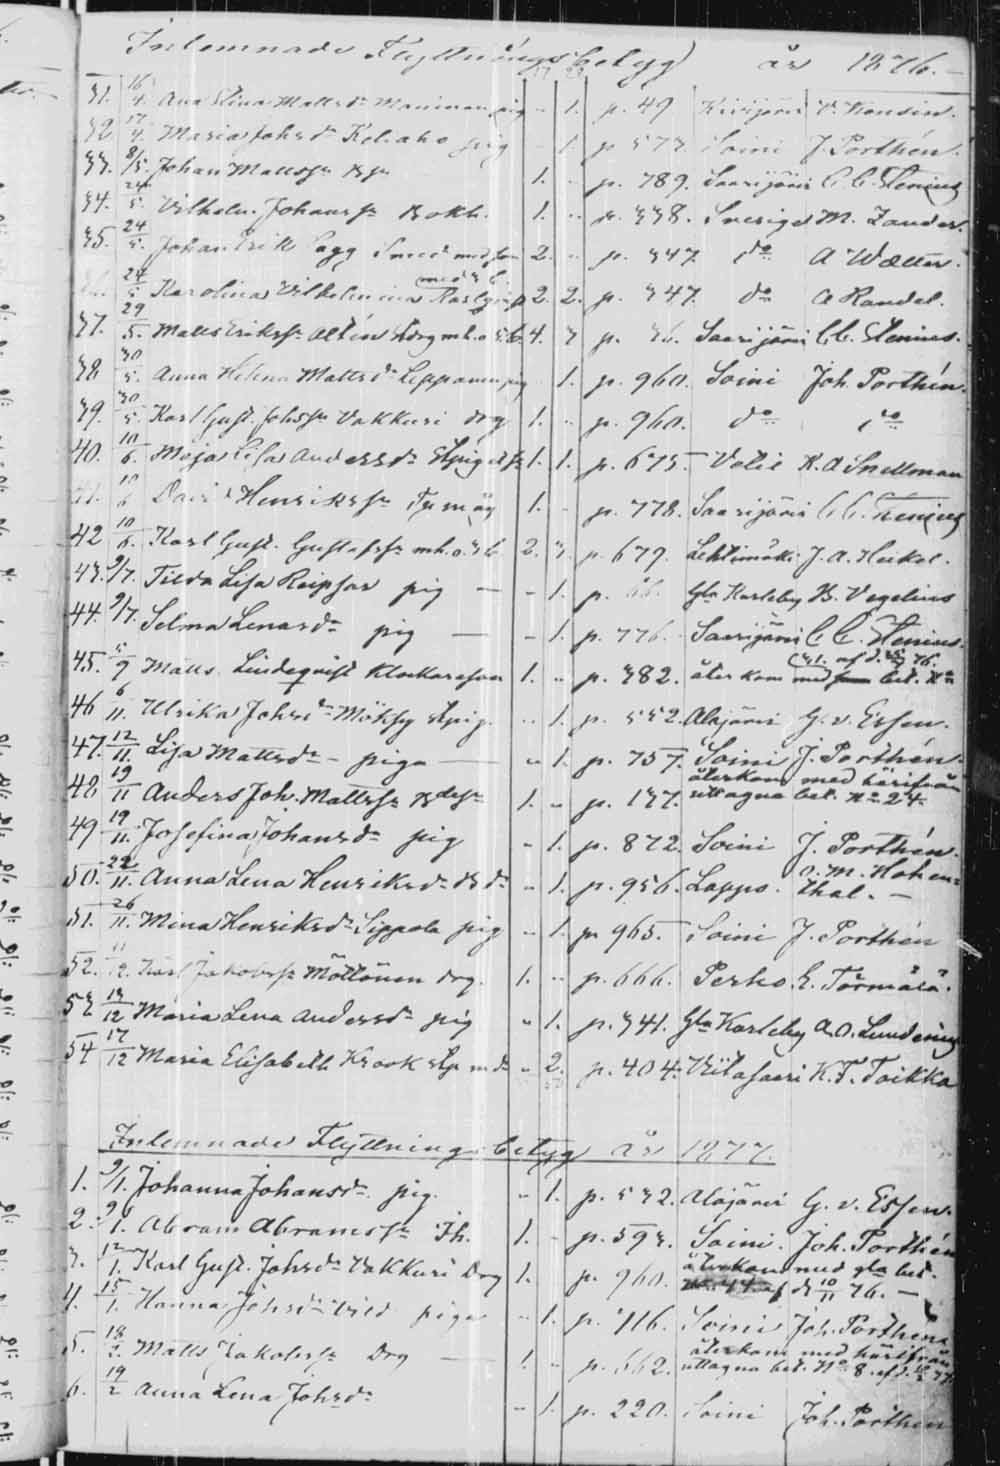 Inlemnade Flyttningsbetyg år 1876.
31. 16/4. Ana Stina Mattsdr Maninen pig - 1. p. 49 Kivijärvi
32 17/4. Maria Johsdr Kokaho pig - 1. p 573. Soini J. Porthén.
33. 8/5. Johan Mattsson Bsn 1. - p. 789. Saarijärvi C. C. Stenius
34. 24/5. Vilhelm. Johansson Bokh. 1. - p. 338. Sverige M. Zander.
35. 24/5. Johan Erik Smed med fam 2. - p. 347 do A Wætter.
24/5 Karolina Vilhelmina med 3 b. 2. 2. p. 347. do A Randel.
37. 29/5. Matts Erikss. Altén Drg mh. o 5 b. 4. 3 p. 36. Saarijärvi C. C. Stenius.
38 30/5. Anna Helena Mattsdr Leppänen pig 1. p. 960. Soini Joh. Porthén.
39. 30/5. Karl Gust. Johsson Vakkuri drg 1. - p. 960. do do
40. 10/6. Maja Lisa Andersdr 1. 1. p. 675 Vetil K. A Snellman
41. 10/6 David Henriksson 1. - p. 778. Saarijärvi C. C. Stenius
42 10/6. Karl Gust. Gustafsson mh. o. 3 b. 2. 3. p. 679. Lehtimäki J. A. Heikel.
43. 9/7. Tilda Lisa Reipsar pig - 1. p. 66. Gla Karleby B. Vegelius
44. 9/7. Selma Lenasdr pig - 1. p. 776. Saarijärvi C. C. Stenius.
45. 5/9 Matts Lindeqvist Klockareson 1. - p. 382. återkom med bet. No
46 6/11. Ulrika Johsdr Möksy pig. - 1. p. 552. Alajärvi G. v. Essen.
47. 12/11. Lisa Mattsdr - piga - 1. p. 757. Soini J. Porthén.
48 19/11 Anders Joh. Mattsson Bdeson 1. - p. 137. återkom med härifrån
uttagna bet. No 24.
49 19/11. Josefina Johansdr pig - 1. p. 872. Soini J. Porthén.
50. 22/11. Anna Lena Henriksdr Bdr - 1. p. 956. Lappo. O. M. Hohen=
thal. -
51. 26/11. Mina Henriksdr Sippola pig - 1. p. 965. Soini J. Porthén
52. 11/12. Karl Jakobsson Möttönen drg. 1. - p. 666. Perho. E. Törmälä.
53 13/12 Maria Lena Andersdr pig - 1. p. 341. Gla Karleby A. O. Lundenius
54 17/12 Maria Elisabeth Krook m d - 2. p. 404. Viitasaari K. F. Toikka
Inlemnade Flyttningsbetyg år 1877.
1. 9/1. Johanna Johansdr. pig. - 1. p. 532. Alajärvi G. v. Essen.
2. 9/1. Abram Abramsson Ih. 1. - p. 593. Soini. Joh. Porthén
3. 12/1. Karl Gust. Johsdr Vakkuri Drg 1. p. 960. återkom med gla bet.
af d 10/11 76. -
4. 15/1. Hanna Johsdr piga - 1. p. 116. Soini Joh. Porthén
5. 18/2. Matts Jakobsson Drg 1. - p. 662. återkom med härifrån
uttagna bet. No 8. af d.
6. 19/2 Anna Lena Johsdr - 1. p. 220. Soini Joh. Porthén